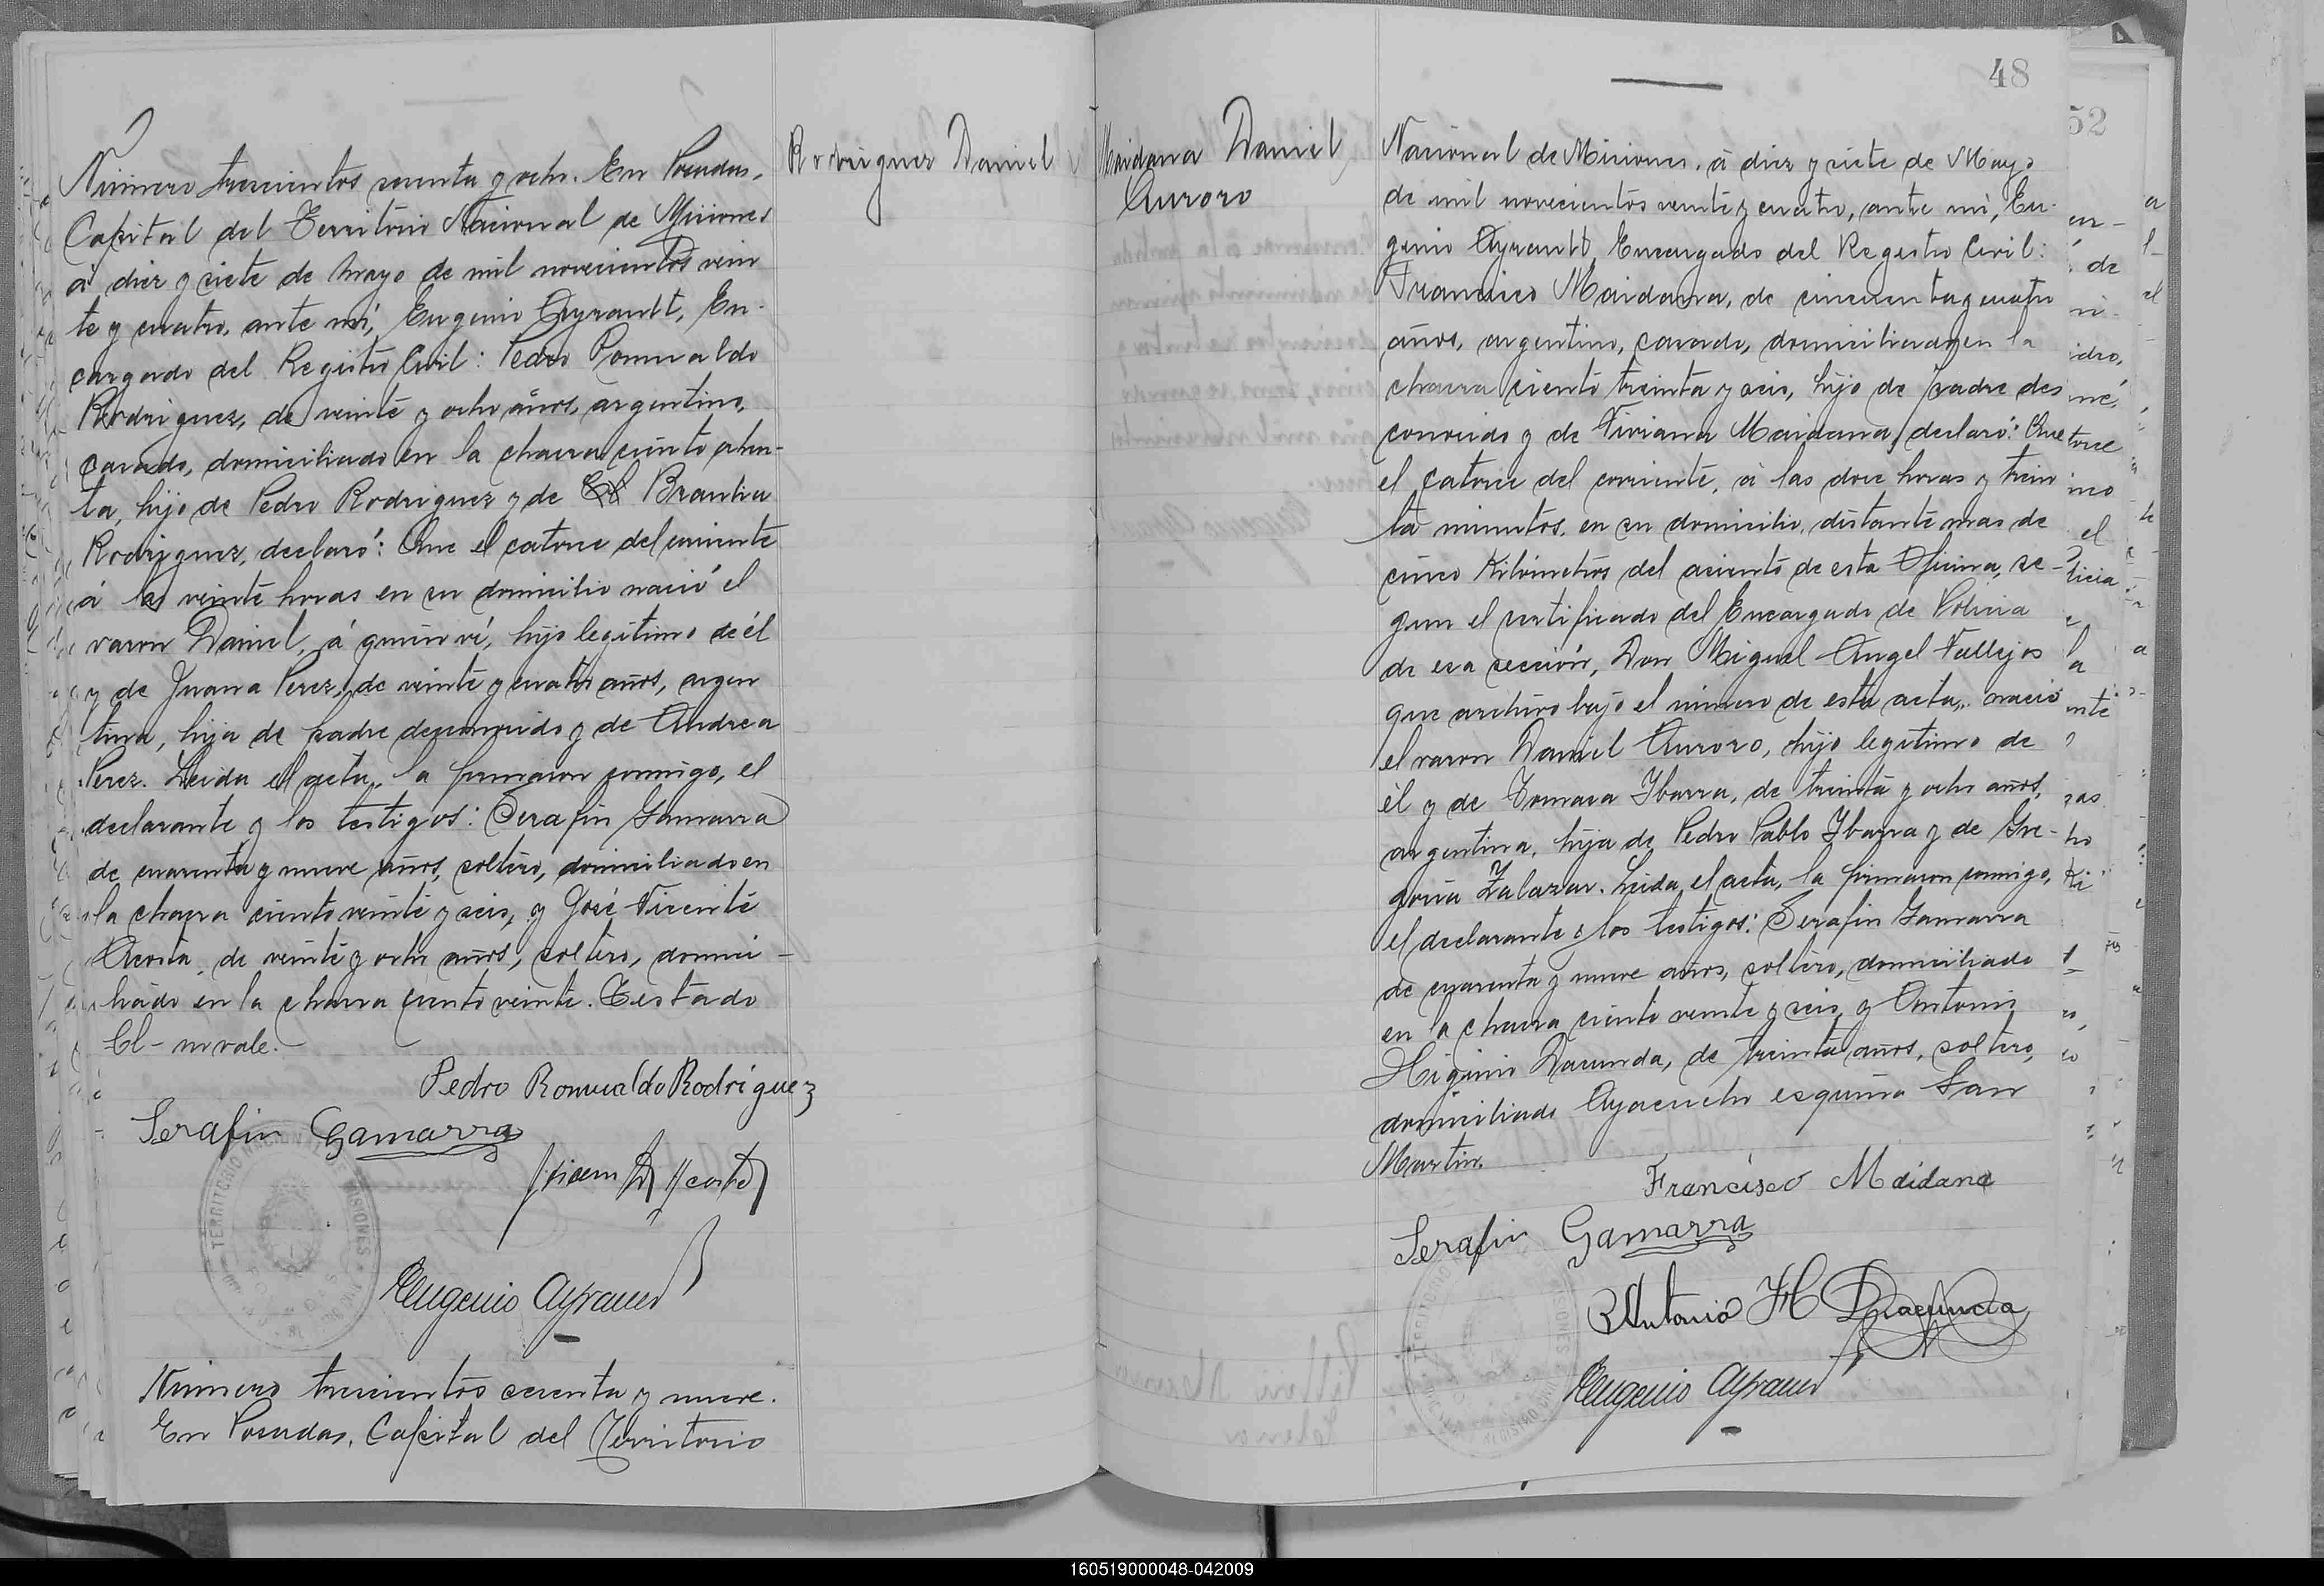 Número trescientos sesenta y ocho. En Posadas,
Capital del Territorio Nacional de Misiones
á diez y siete de Mayo de mil novecientos vein
te y cuatro, ante mí, Eugenio Ayrault, En-
cargado del Registro Civil: Pedro Romualdo
Rodriguez, de veinte y ocho años, argentino,
casado, domiciliado en la chacra ciento ochen-
ta, hijo de Pedro Rodriguez y de Braulia
Rodriguez, declaró: Que el catorce del corriente
á las veinte horas en su domicilio nació el
varon Daniel, á quien ví, hijo legítimo de él
y de Juana Perez, de veinte y cuatro años, argen
tina, hija de padre desconocido y de Andrea
Perez. Leida el acta, la firmaron conmigo, el
declarante y los testigos: Serafin Gamarra
de cuarenta y nueve años, soltero, domiciliado en
la chacra ciento veinte y seis, y José Vicente
Acosta, de veinte y ocho años, soltero, domici-
liado en la chacra ciento veinte. Testado
El- no vale.
Pedro Romualdo Rodríguez
Serafin Gamarra
Acosta
TERRITORIO NACIONAL DE MISIONES
Eugenio Ayrault
Número trescientos sesenta y nueve.
En Posadas, Capital del Territorio
Rodriguez Daniel
Maidana Daniel
Auroro
48
Nacional de Misiones, á diez y siete de Mayo
de mil novecientos veinte y cuatro, ante mí, Eu-
genio Ayrault, Encargado del Registro Civil:
Francisco Maidana, de cincuenta y cuatro
años, argentino, casado, domiciliado en la
chacra ciento treinta y seis, hijo de padre des
conocido y de Viviana Maidana, declaró: Que
el catorce del corriente, á las doce horas y trein
ta minutos, en su domicilio, distante mas de
cinco Kilómetros del asiento de esta Oficina, se-
gun el certificado del Encargado de Policia
de esa sección, Don Miguel Angel Vallejos
que archivo bajo el número de esta acta, nació
el varon Daniel Auroro, hijo legítimo de
él y de Tomasa Ybarra, de treinta y ocho años,
argentina, hija de Pedro Pablo Ybarra y de Gre-
goria Zalazar. Leida el acta, la firmaron conmigo,
el declarante y los testigos: Serafin Gamarra
de cuarenta y nueve años, soltero, domiciliado
en la chacra ciento veinte y seis, y Antonio
Higinio Dacunda, de treinta años, soltero,
domiciliado Ayacucho esquina San
Martin.
Francisco Maidana
Serafin Gamarra
Antonio H Dacunda
Eugenio Ayrault
52
160519000048-042009